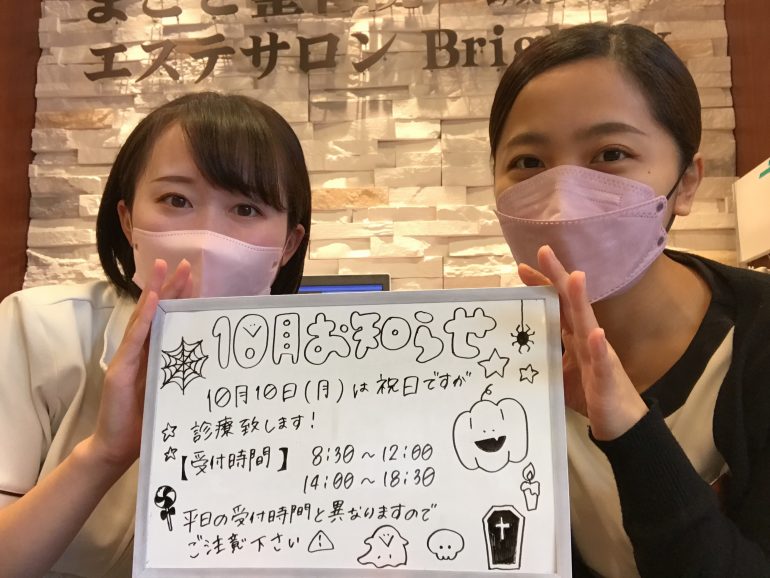 まごころ整骨院
エステサロン Brig
10月お知らせ
10月10日(月)は祝日ですが
診療致します!
【受付時間】 8:30~12:00
14:00~18:30
平日の受付時間と異なりますので
ご注意下さい